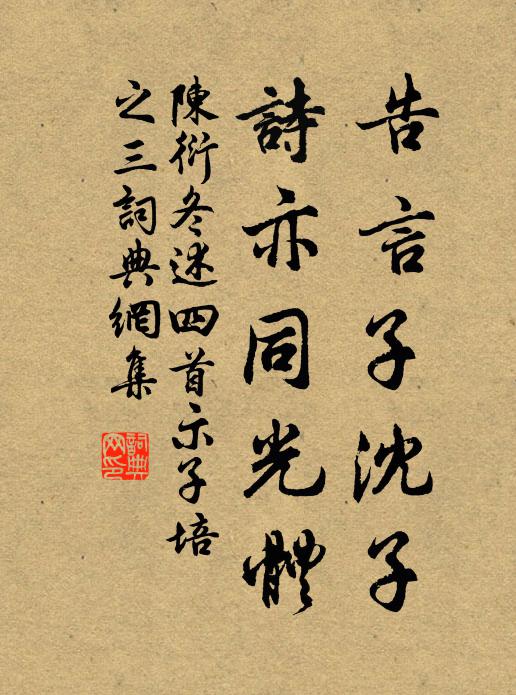 告言子沈子
詩亦同光體
陳衍冬述四首示子培
之三詞典網集
詞典
网印